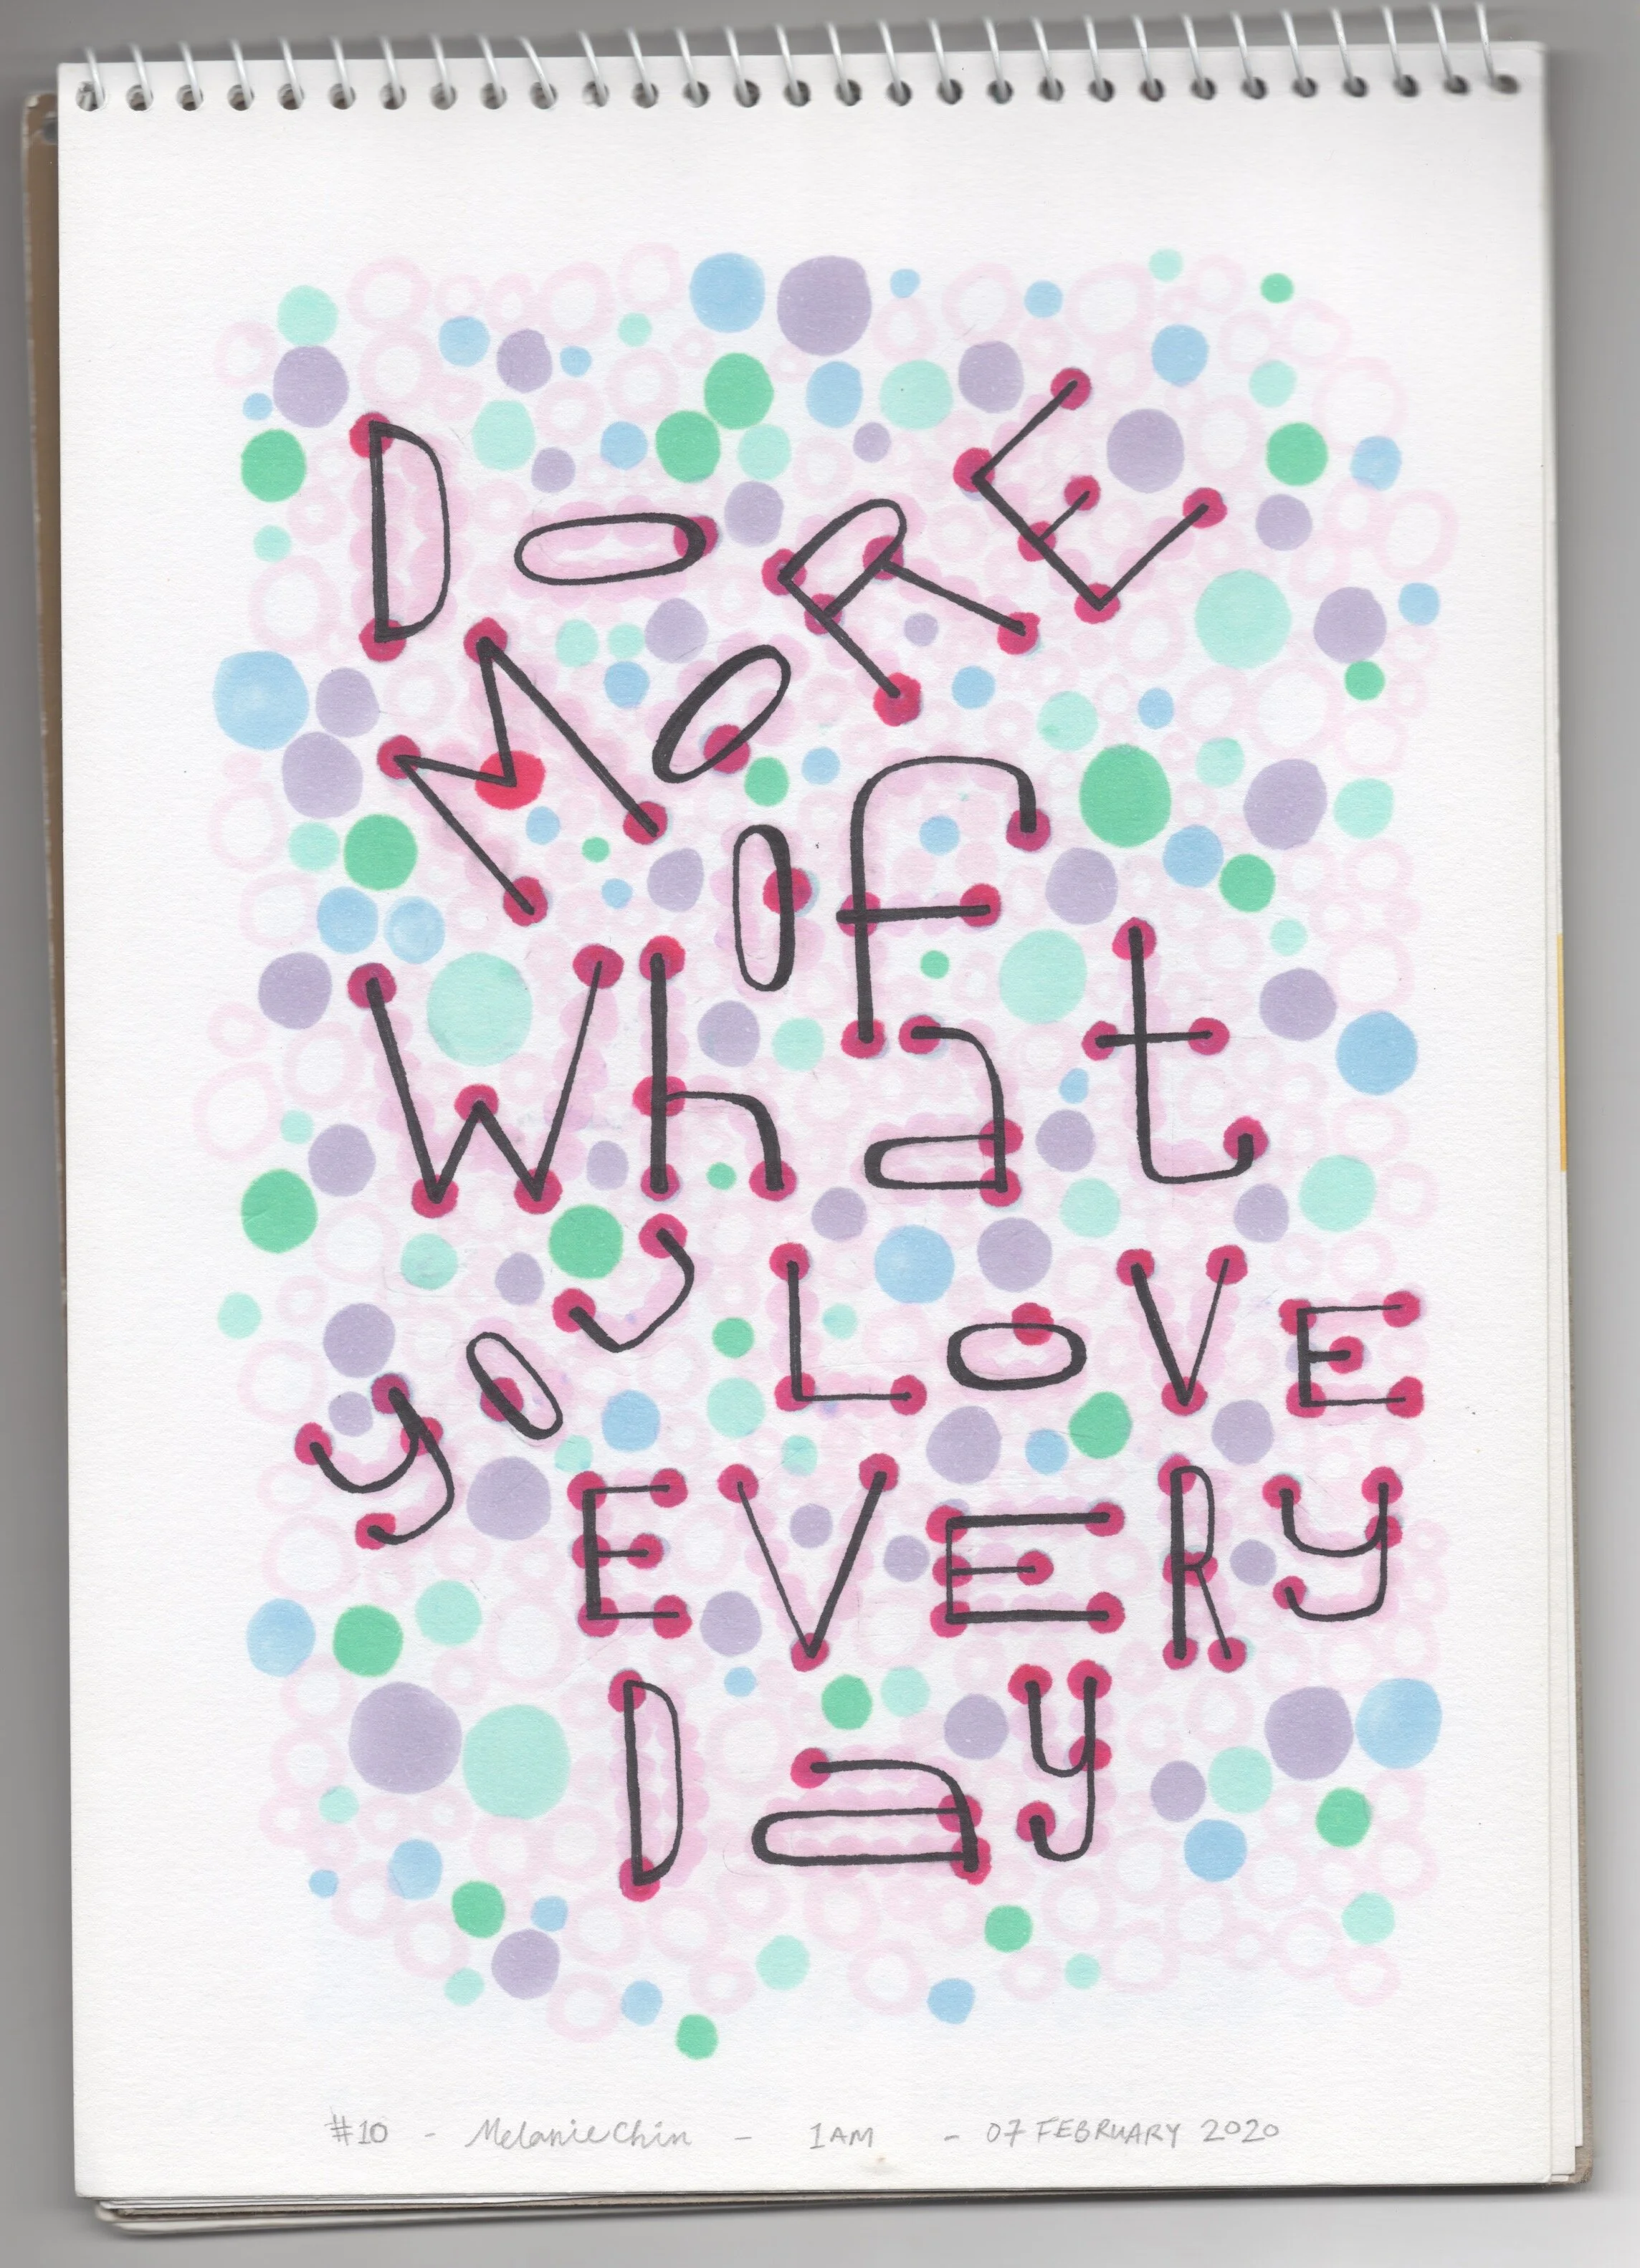 Do MORE
Of
What
you LOVE
EVERy
Day
#10 - Melanie Chin - 1AM - 07 FEBRUARY 2020